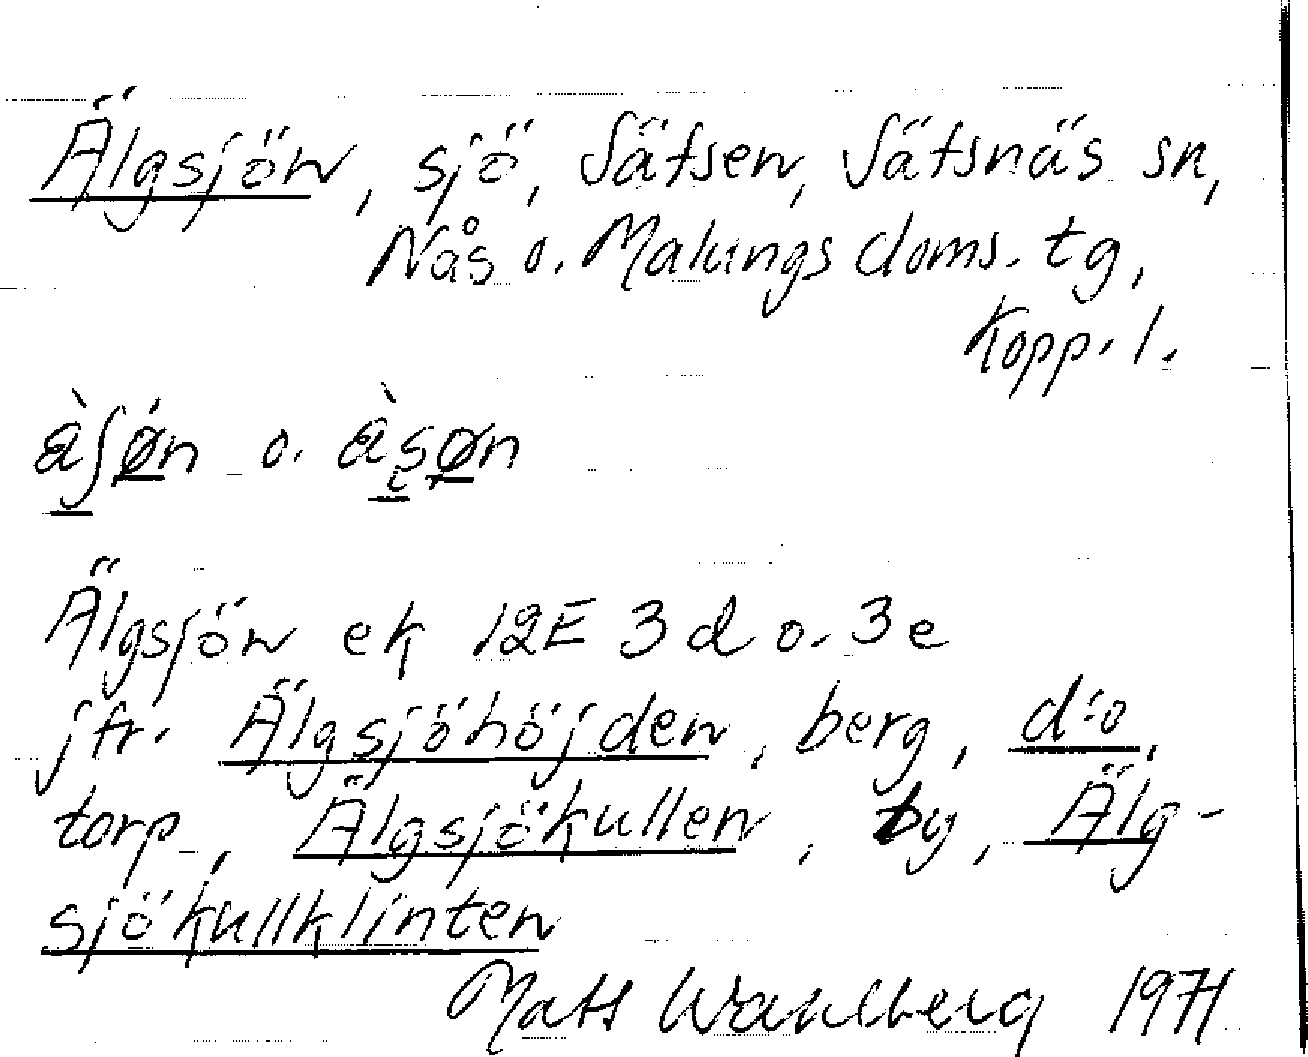 Älgsjön, sjö, Sätsen, Sätsnäs sn,
Nås o. Malungs doms. tg,
Kopp. l.
o.
Älgsjön ek 12E 3d o. 3e
jfr. Älgsjöhöjden, berg, d:o,
torp, Älgsjökullen, by, Älg-
sjökullklinten
Mats Wahlberg 1971